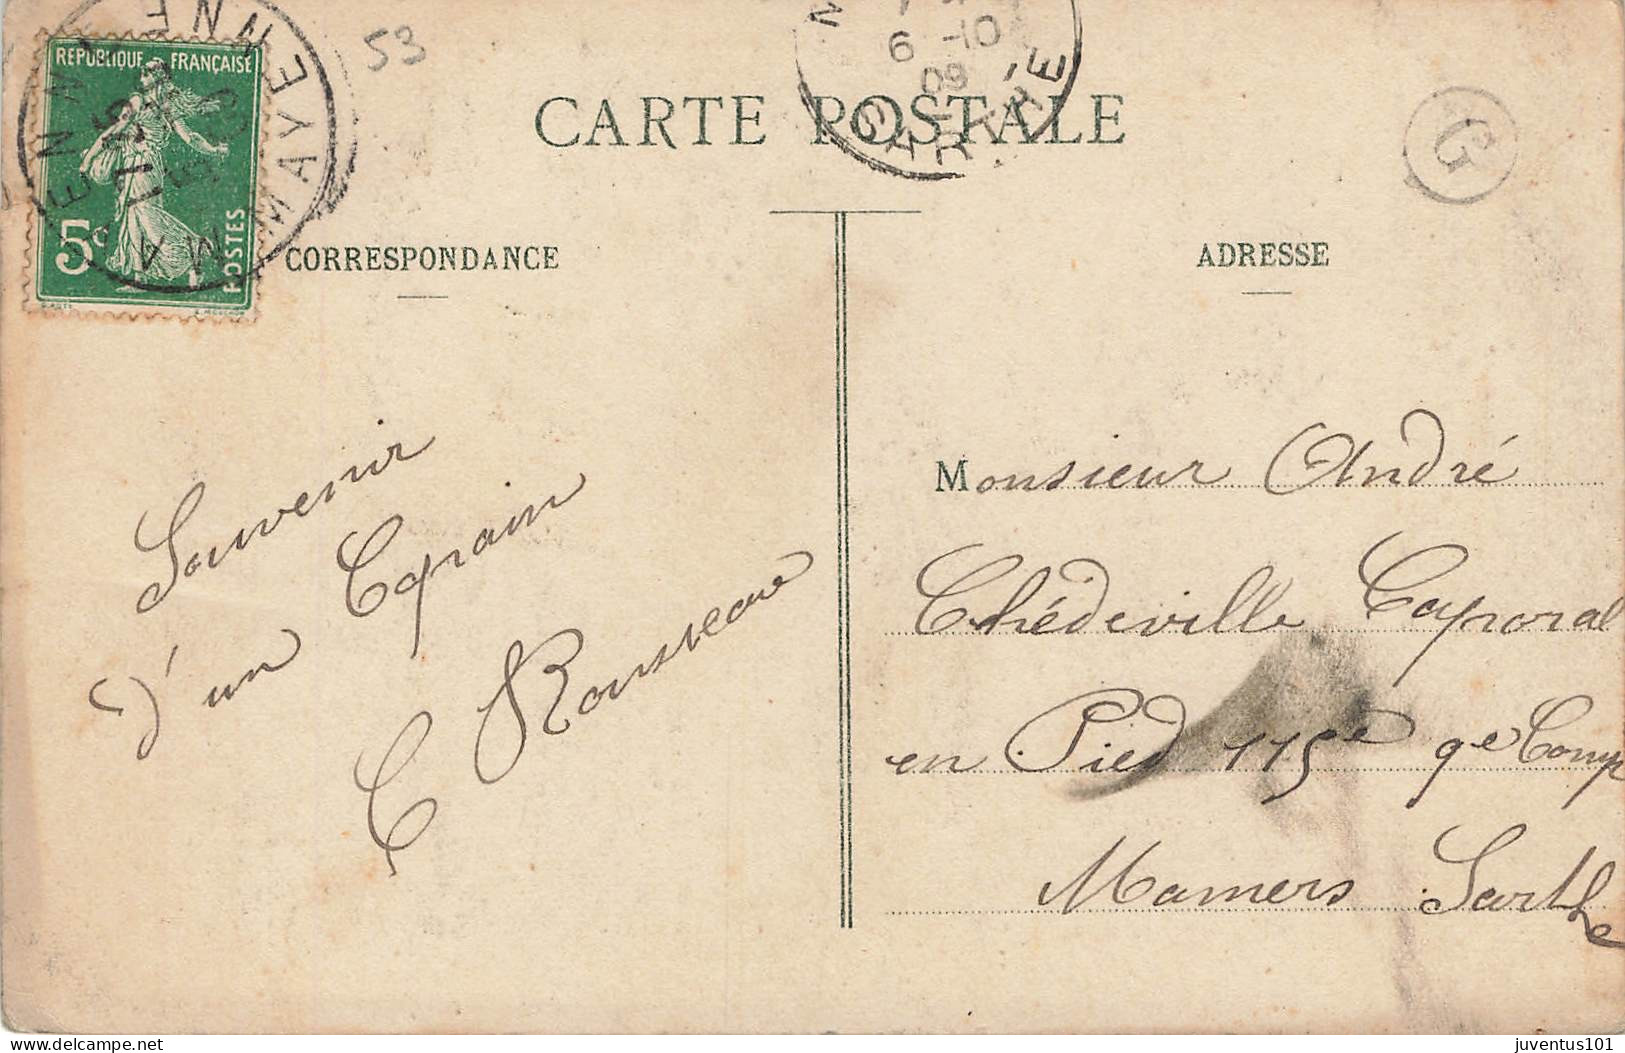 53
REPUBLIQUE FRANÇAISE
5c
POSTES
MAYENNE
MAYENNE
6 -10
09
SARTHE
G
CARTE POSTALE
CORRESPONDANCE
ADRESSE
Souvenir
d'un Copain
C Rousseau
Monsieur André
Chédeville Caporal
en Pied 115e 9e Comp
Mamers Sarthe
delcampe.net
juventus101